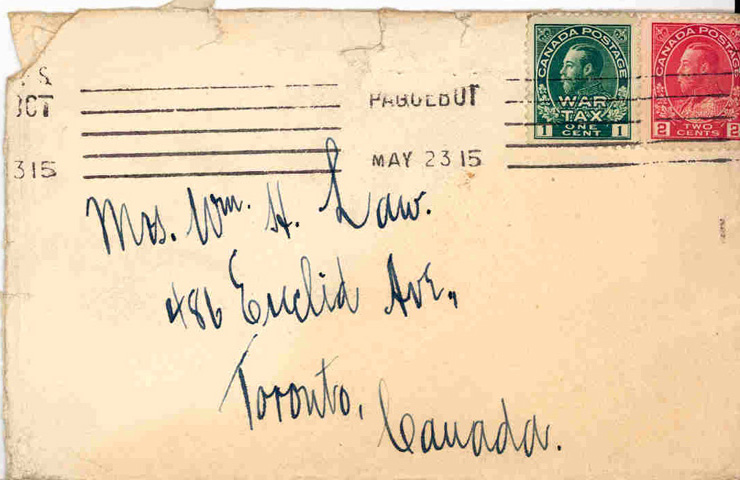 CANADA POSTAGE
WAR
TAX
1 ONE CENT 1
CANADA POSTAGE
2 TWO CENTS 2
PAQUEBUT
MAY 23 15
315
Mrs. Wm. H. Law.
486 Euclid Ave.,
Toronto,
Canada.